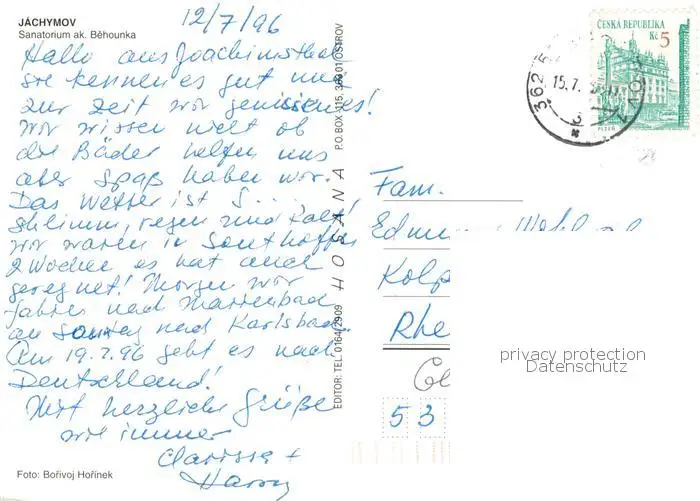 JÁCHYMOV
Sanatorium ak. Běhounka
12/7/96
Hallo aus Joachimsthal
sie kennen es gut und
zur Zeit wir geniessen es!
Wir wissen nicht ob
die Bäder helfen uns
aber Spaß haben wir.
Das Wetter ist S....,
schlimm, regen und kalt!
Wir waren in Sonthofen
2 Wochen es hat auch
geregnet! Morgen wir
fahren nach Marienbad
an Sonntag nach Karlsbad.
Am 19.7.96 geht es nach
Deutschland!
Mit herzliche Grüße
wie immer
Clarissa +
Harry
Foto: Bořivoj Hořínek
EDITOR: TEL. 0164/2909 HOSANA P.O.BOX 115, 363 01 OSTROV
ČESKÁ REPUBLIKA
Kč 5
PLZEŇ
15.7.
3
Fam.
Kolp
Rhe
53
privacy protection
Datenschutz